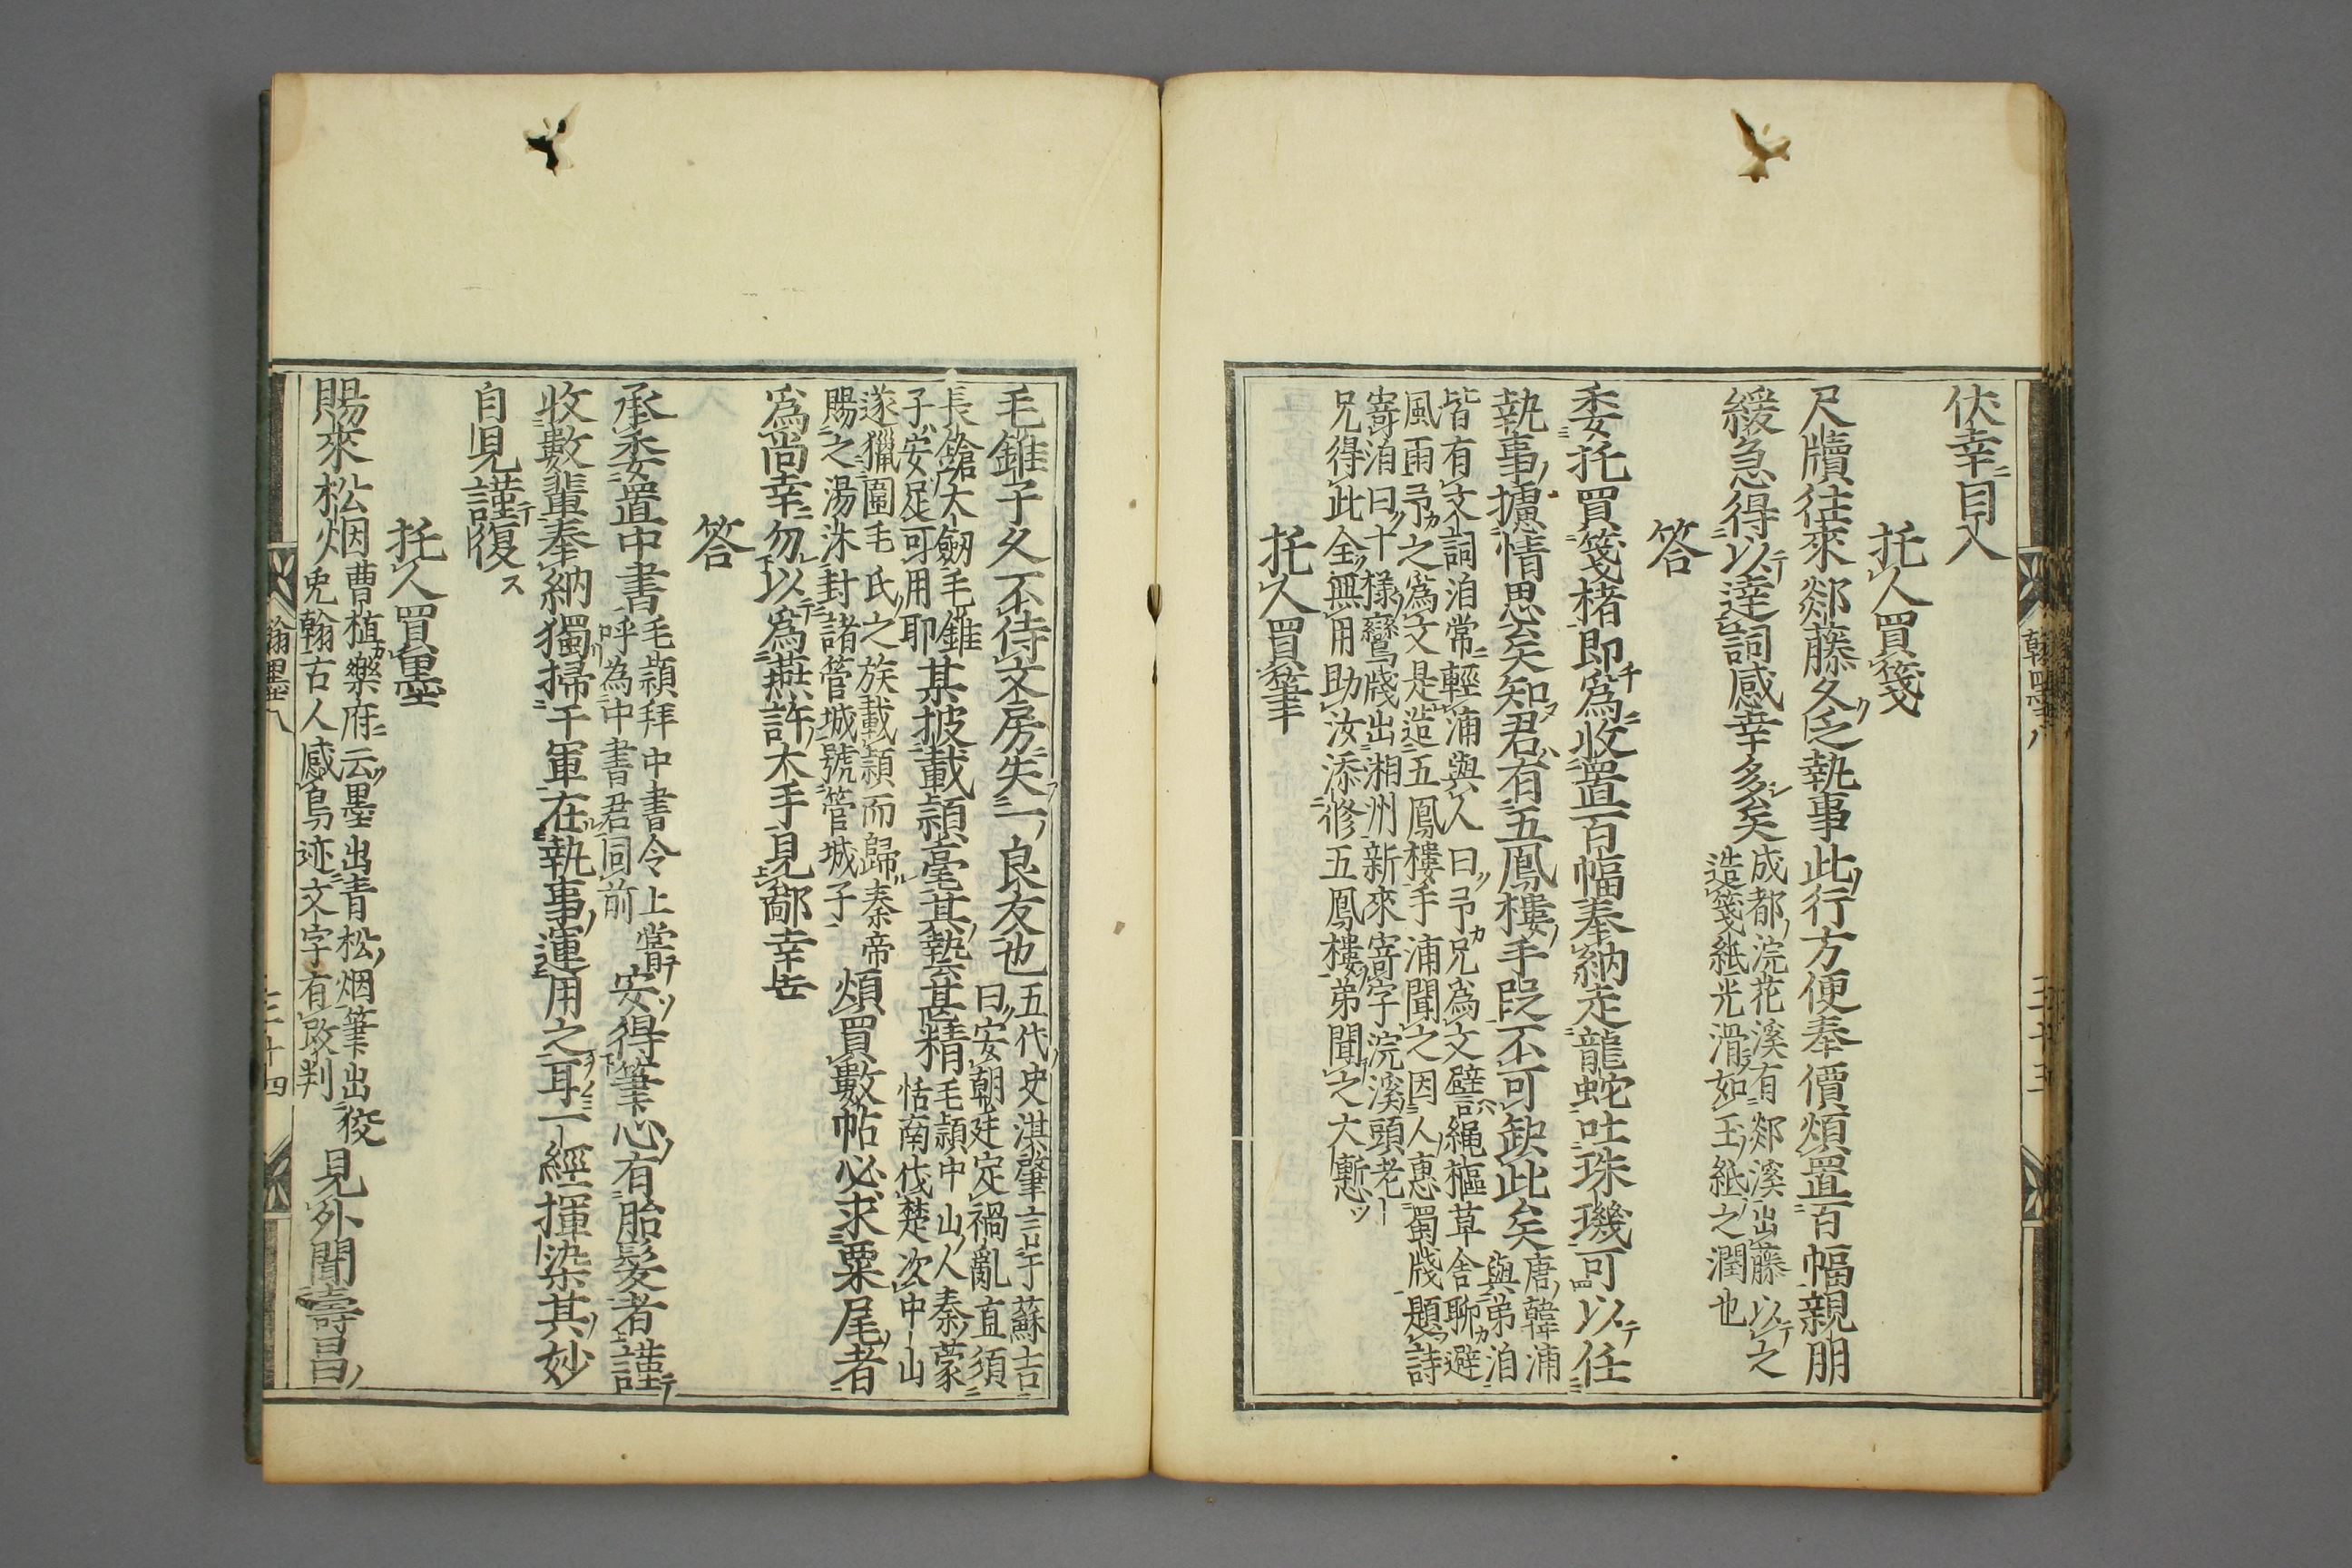 伏幸目入
托人買箋
尺牘往來郯藤久乏執事此行方便奉價煩置百幅親朋
緩急得以達詞感幸多矣
成都浣花溪有郯溪出藤以之
造箋紙光滑如玉紙之潤也
答
委托買箋楮即爲收置百幅奉納走龍蛇吐珠璣可以任
執事攄情思矣知君有五鳳樓手段不可缺此矣
唐韓浦
與弟洎
皆有文詞洎常輕浦與人曰予兄爲文譬繩樞草舍聊避
風雨予之爲文是造五鳳樓手浦聞之因人惠蜀牋題詩
寄洎曰十樣鸞牋出湘州新來寄字浣溪頭老
兄得此全無用助汝添修五鳳樓弟聞之大慙
托人買筆
翰墨八
三十三
毛錐子久不侍文房失一良友也
五代史淇肇言于蘇吉
曰安朝廷定禍亂直須
長鎗大劒毛錐
子安足可用耶
某披載頴毫其藝甚精
毛頴中山人秦蒙
恬南伐楚次中山
遂獵圍毛氏之族載頴而歸秦帝
賜之湯沐封諸管城號管城子
煩買數帖必求粟尾者
爲尚幸勿以爲燕許大手見鄙幸甚
答
承委置中書
毛頴拜中書令上嘗
呼為中書君同前
安得筆心有胎髮者謹
收數輩奉納獨掃千軍在執事運用之耳一經揮染其妙
自見謹復
托人買墨
賜來松烟
曹植樂府云墨出青松烟筆出狡
兎翰古人感鳥迹文字有改判
見外聞壽昌
翰墨八
三十四